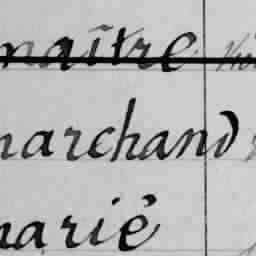 maître
marchand
marié